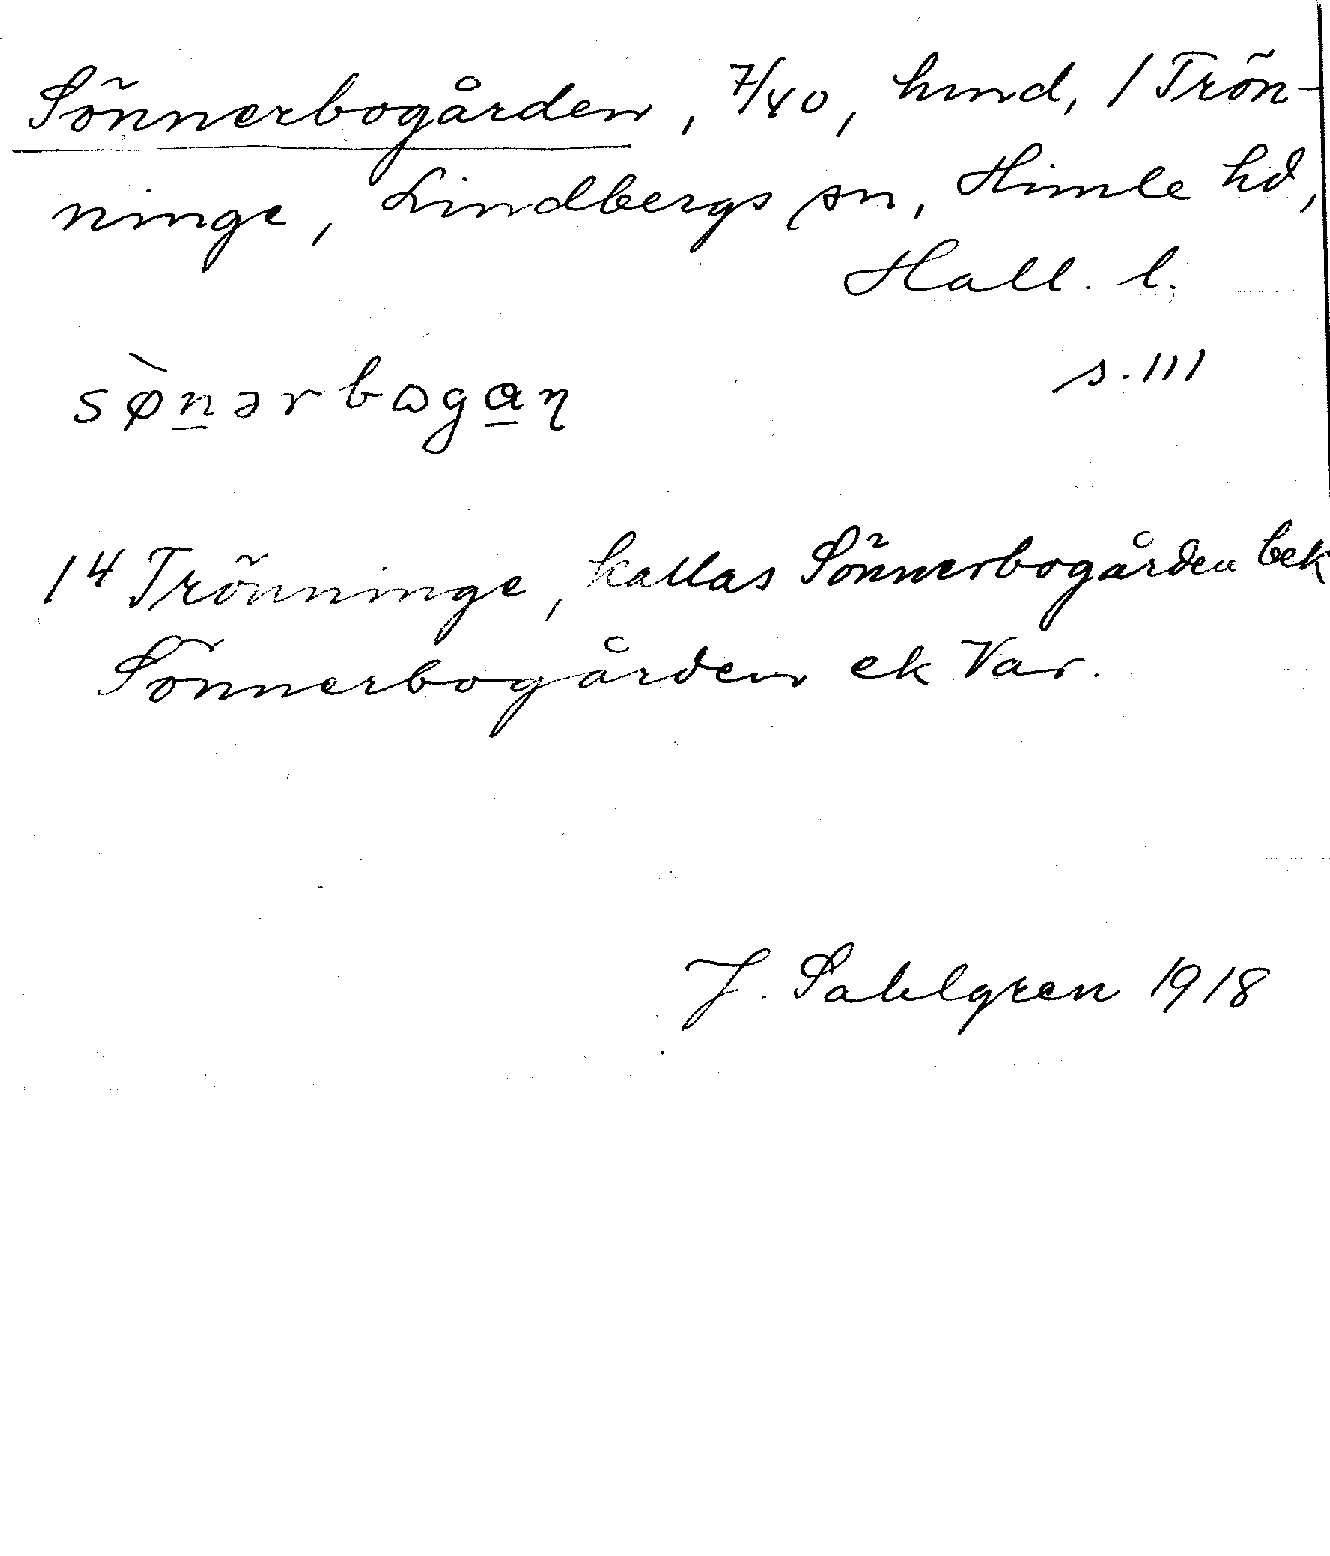 Sönnerbogården, 7/40, hmd, 1 Trön-
ninge, Lindbergs sn, Himle hd,
Hall. l.
s. 111
sø̀n̲ərbɷga̲ɳ
14 Trönninge, kallas Sönnerbogården bek
Sönnerbogården ek Var.
J. Sahlgren 1918